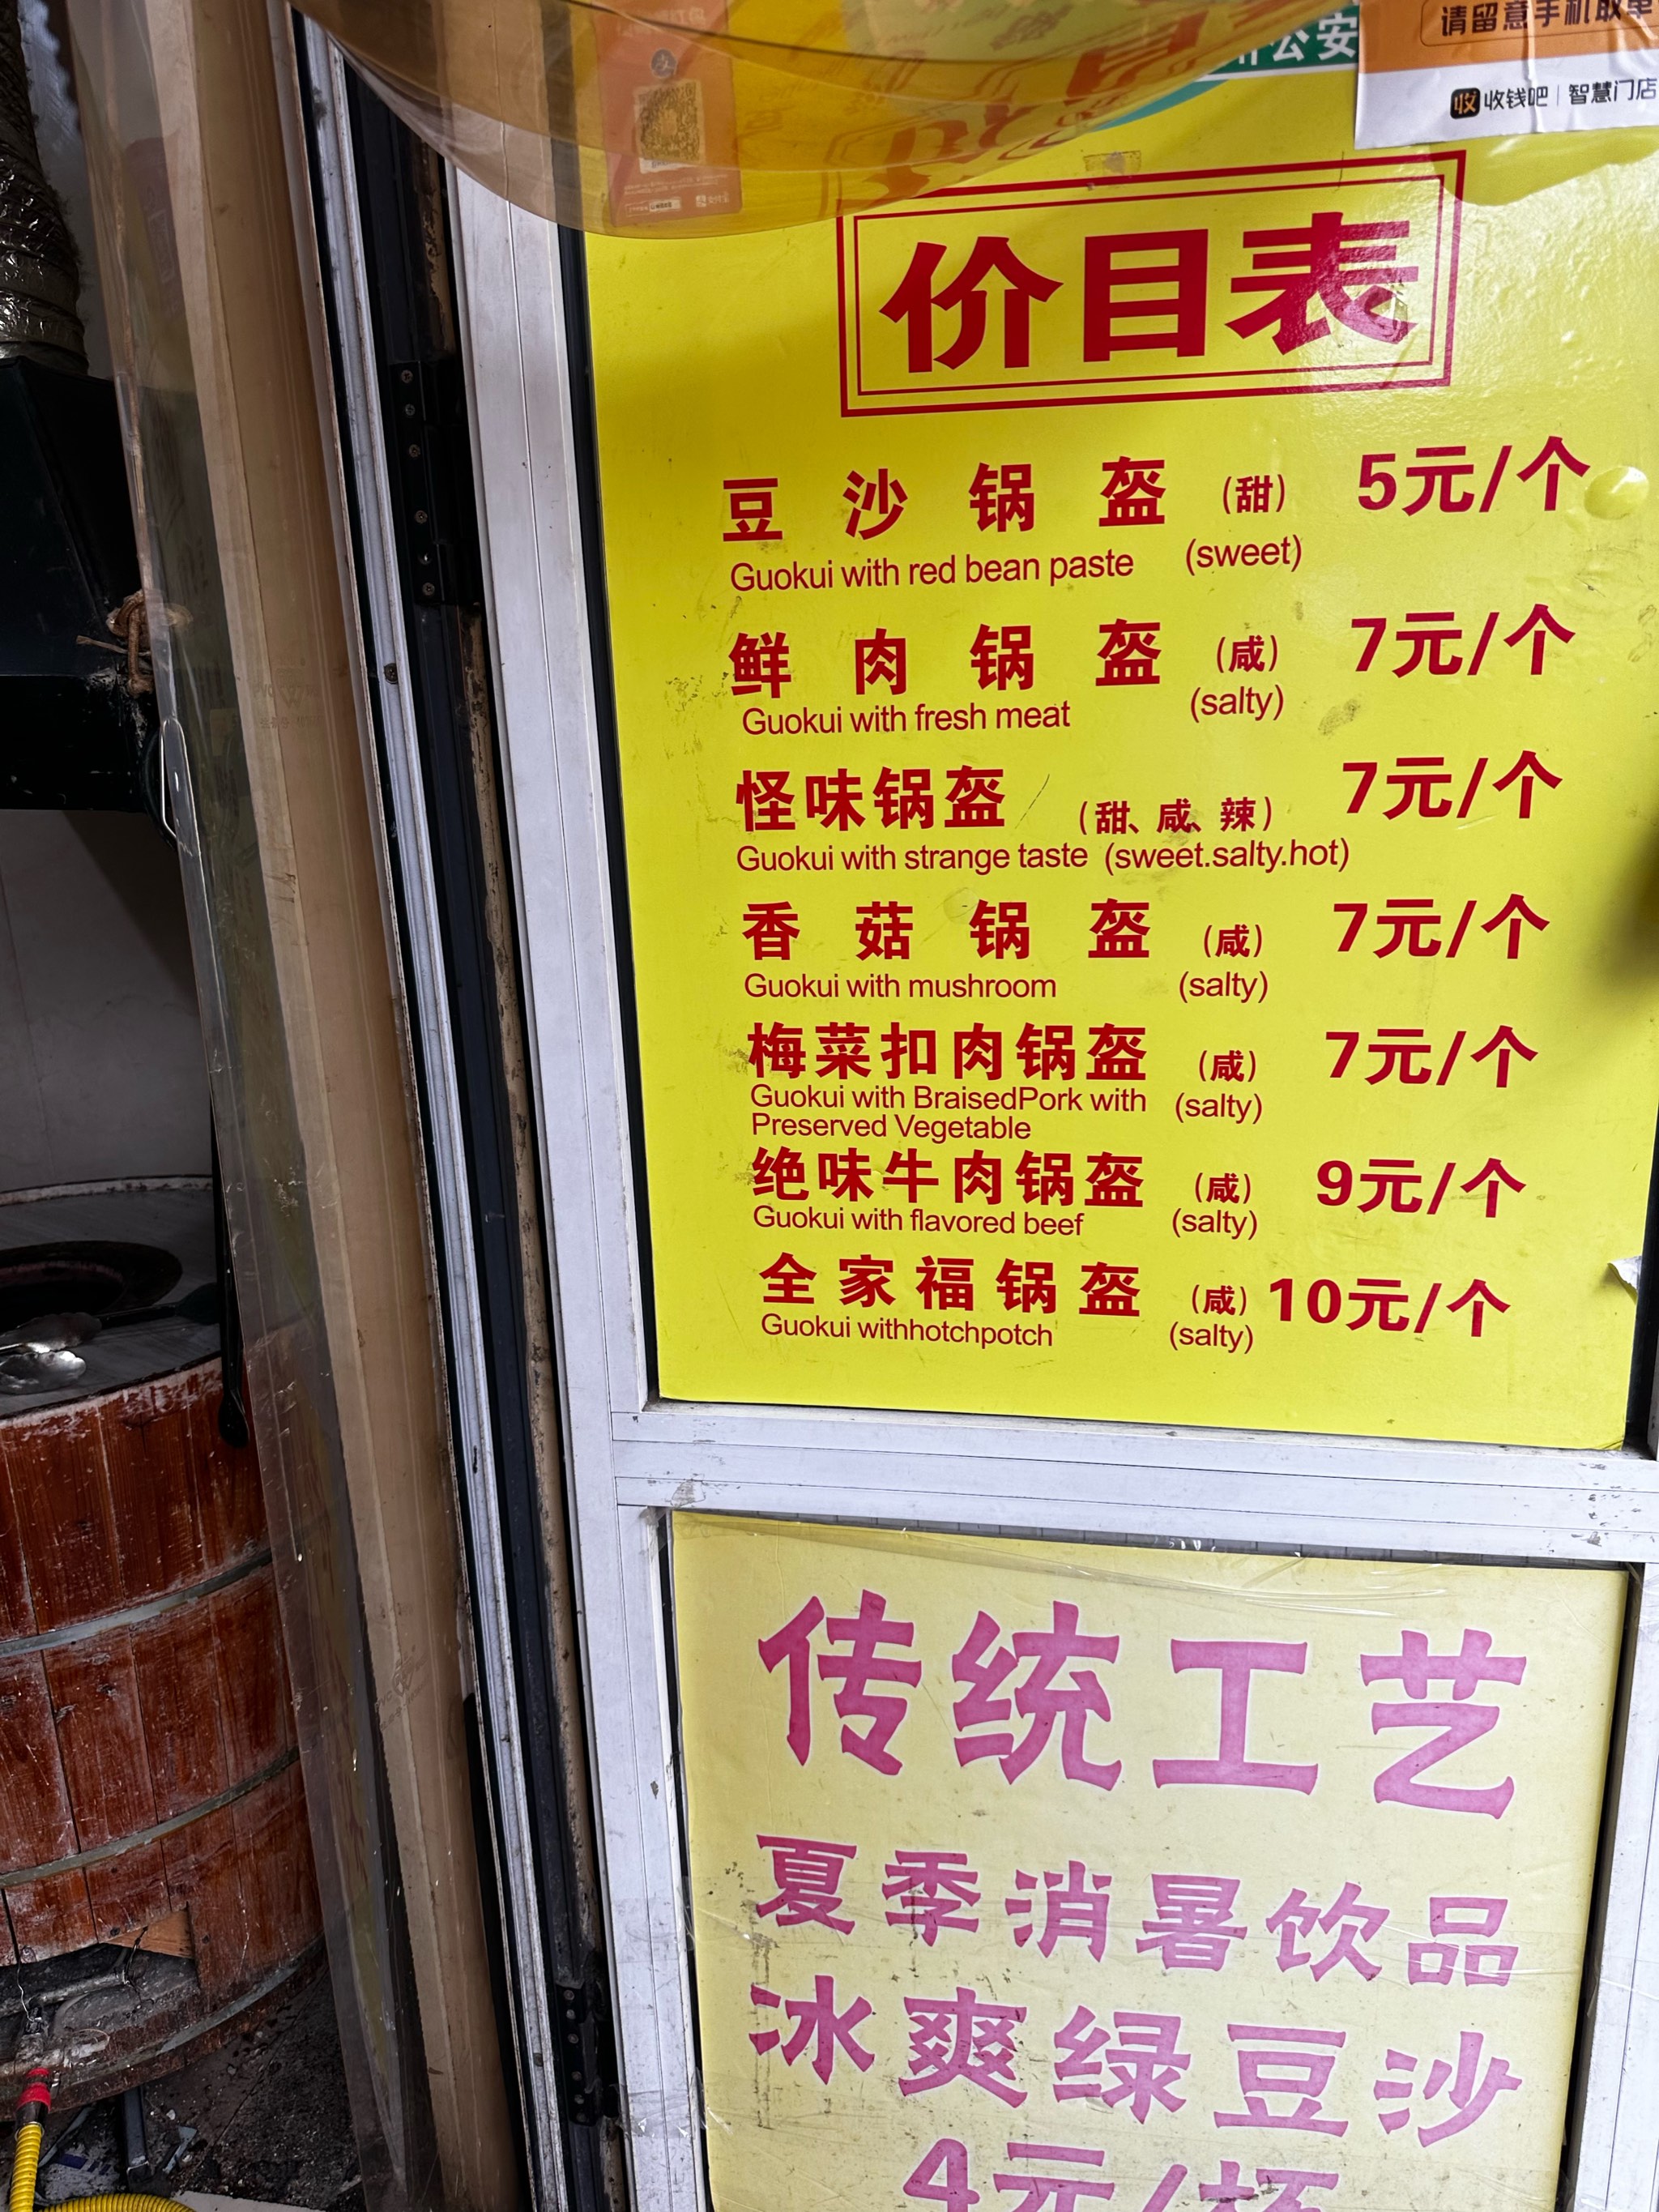 请留意手机取单
收钱吧 | 智慧门店
公安
价目表
豆沙锅盔 (甜) 5元/个
Guokui with red bean paste (sweet)
鲜肉锅盔 (咸) 7元/个
Guokui with fresh meat (salty)
怪味锅盔 (甜、咸、辣) 7元/个
Guokui with strange taste (sweet.salty.hot)
香菇锅盔 (咸) 7元/个
Guokui with mushroom (salty)
梅菜扣肉锅盔 (咸) 7元/个
Guokui with BraisedPork with (salty)
Preserved Vegetable
绝味牛肉锅盔 (咸) 9元/个
Guokui with flavored beef (salty)
全家福锅盔 (咸) 10元/个
Guokui withhotchpotch (salty)
传统工艺
夏季消暑饮品
冰爽绿豆沙
4元/杯